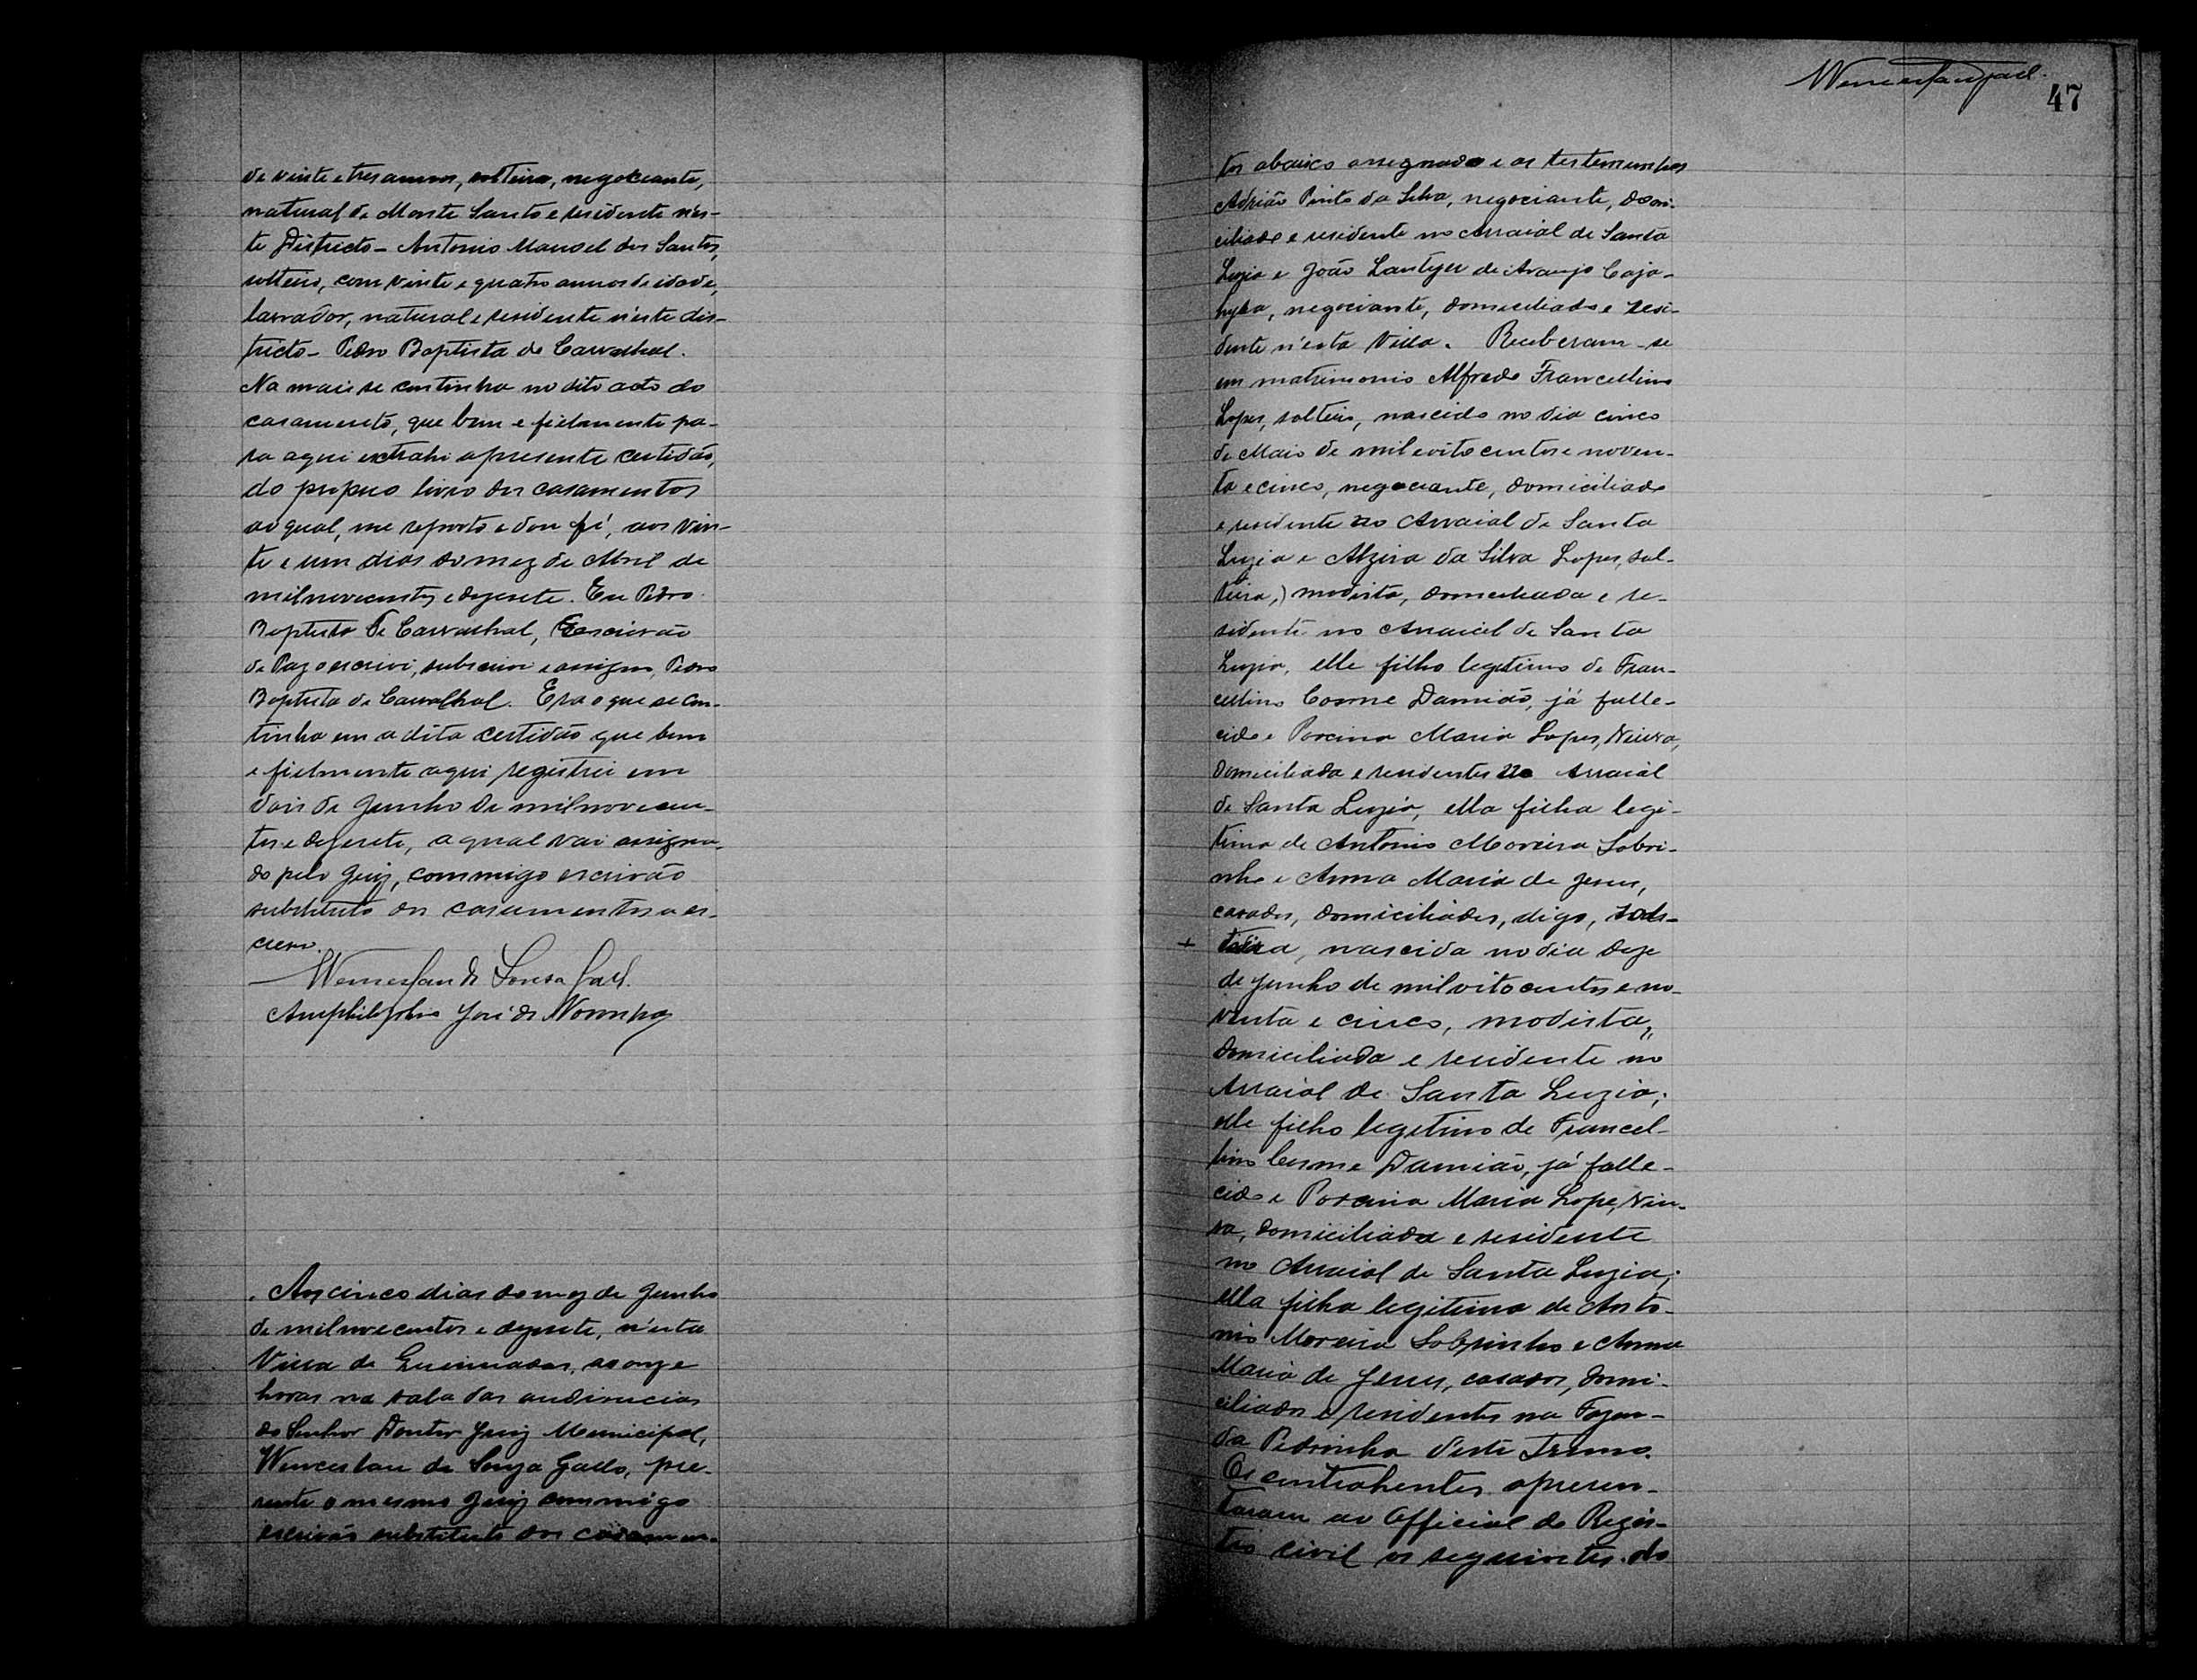 de vinte e tres annos, solteiro, negociante,
natural de Monte Santo e residente n'es-
te Districto - Antonio Manoel dos Santos,
solteiro, com vinte e quatro annos de idade,
lavrador, natural e residente n'este dis-
tricto - Pedro Baptista de Carvalhal.
Na mais se continha no dito acto do
casamento, que bem e fielmente pa-
ra aqui extrahi a presente certidão,
do proprio livro dos casamentos
ao qual, me reporto e dou fé, aos vin-
te e um dias do mez de Abril de
mil novecentos e dezesete. Eu Pedro
Baptista de Carvalhal, Escrivão
de Paz o escrivi, subscrivi e assigno, Pedro
Baptista de Carvalhal. Era o que se con-
tinha em a dita certidão que bem
e fielmente aqui registrei em
dois de Junho de mil novecen-
tos e dezesete, a qual vai assigna-
do pelo Juiz, commigo escrivão
substituto dos casamentos o es-
crevo.
Wenceslau de Souza
José de
Aos cinco dias do mez de Junho
de mil novecentos e dezesete, n'esta
Villa de Queimadas, as onze
horas na sala das audiencias
do Senhor Doutor Juiz Municipal,
Wenceslau de Souza Gallo, pre-
sente o mesmo Juiz commigo
escrivão substituto dos casamen-
47
tos abaixo assegnado e as testemunhas
Adrião Pinto da Silva, negociante, domi-
ciliado e residente no Arraial de Santa
Luzia e João de Araujo Caja-
hyba, negociante, domiciliado e resi-
dente n'esta Villa. Receberam-se
em matrimonio Alfredo Francellino
Lopes, solteiro, nascido no dia cinco
de Maio de mil e oito centos e noven-
ta e cinco, negociante, domiciliado
e residente no Arraial de Santa
Luzia e Alzira da Silva Lopes, sol-
teira,) modista, domiciliada e re-
sidente no Arraial de Santa
Luzia, elle filho legitimo de Fran-
cellino Cosme Damião, já falle-
cido e Porcina Maria Lopes, Viuva,
domiciliada e residentes no Arraial
de Santa Luzia, ella filha legi-
tima de Antonio Moreira Sobri-
nho e Anna Maria de Jesus,
casados, domiciliados, digo, sol-
+ teira, nascida no dia doze
de Junho de mil oito centos e no-
venta e cinco, modista,
domiciliada e residente no
Arraial de Santa Luzia;
elle filho legitimo de Francel-
lino Cosme Damião, já falle-
cido e Porcina Maria Lope, Viu-
va, domiciliada e residente
no Arraial de Santa Luzia;
ella filha legitima de Anto-
nio Moreira Sobrinho e Anna
Maria de Jesus, casados, domi-
ciliados e residentes na Fazen-
da Pedrinha d'este Termo.
Os contrahentes apresen-
taram ao Official do Regis-
tro civil os seguintes do